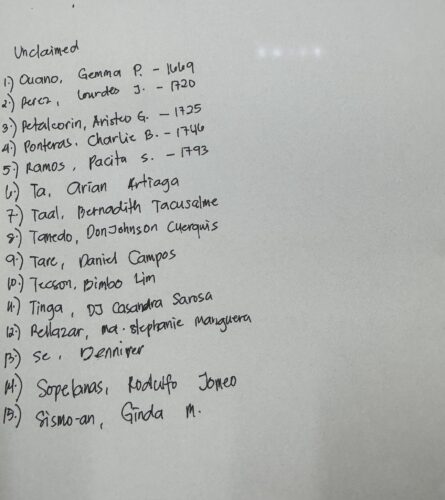 Unclaimed
1.) Ouano, Gemma P. - 1669
2.) Perez, Lourdes J. - 1720
3.) Petalcorin, Aristeo G. - 1725
4.) Ponteras, Charlie B. - 1746
5.) Ramos, Pacita S. - 1793
6.) Ta, Arian Artiaga
7.) Taal, Bernadith Tacusalme
8.) Tanedo, DonJohnson Cuerquis
9.) Tare, Daniel Campos
10.) Tecson, Bimbo Lim
11.) Tinga, DJ Casandra Sarosa
12.) Rellazar, Ma. Stephanie Manguera
13.) Se, Dennimer
14.) Sopelanas, Rodulfo Jomeo
15.) Sismo-an, Ginda M.